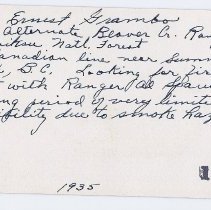 Ernest, Grambo
Alternate, Beaver Cr. Ran
iksu Natl. Forest
anadian line near Summ
, B.C. Looking for fir
with Ranger Al Spau
ng period of very limite
ibility due to smoke haz
1935